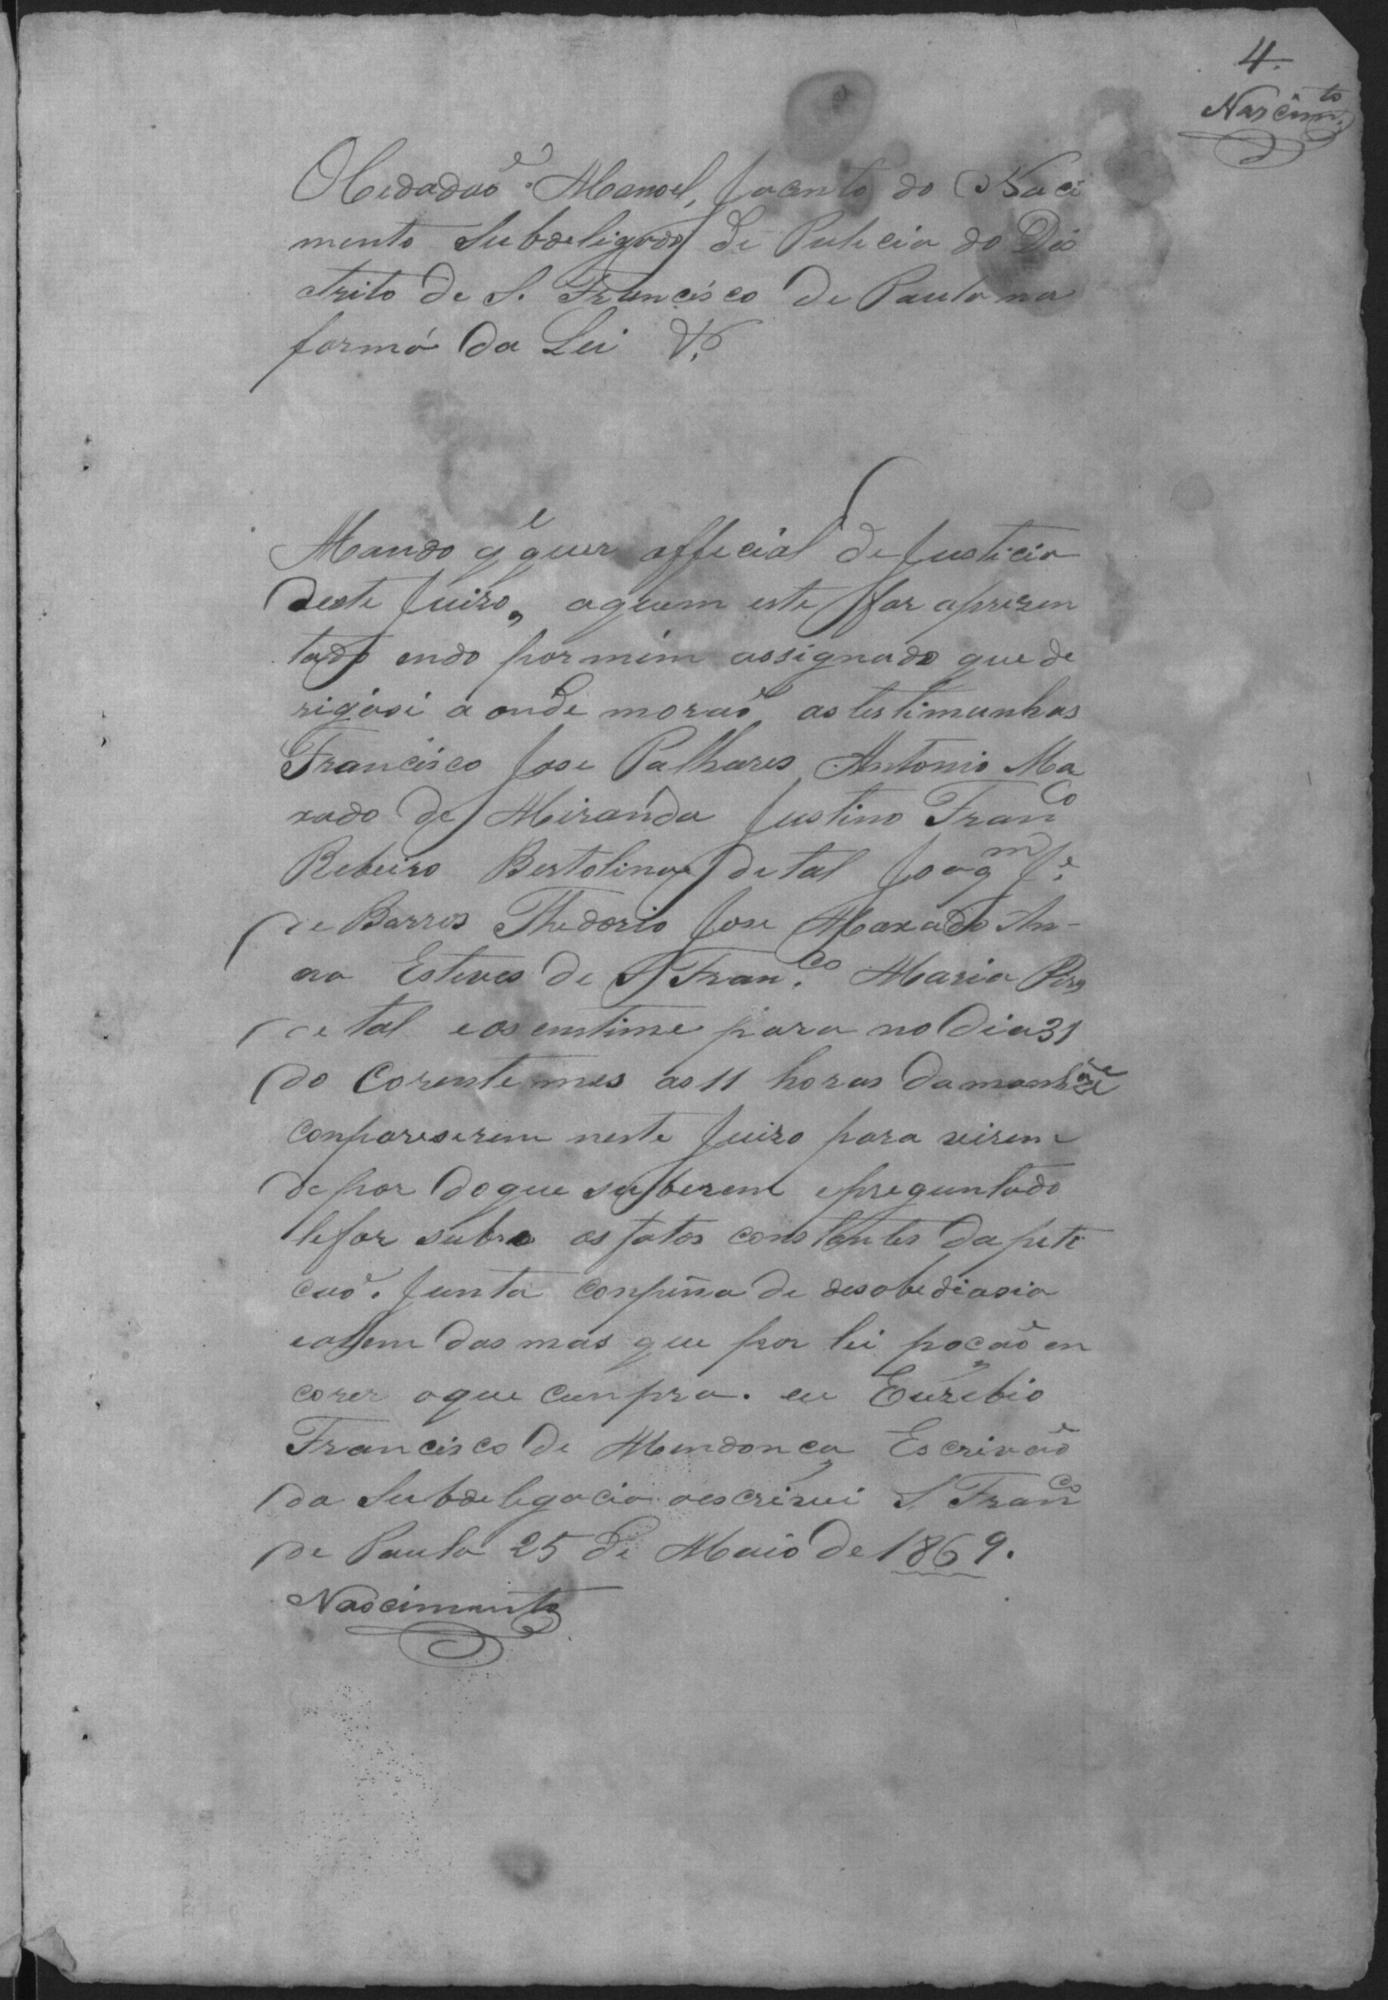 4.
Nascim.to
O Cidadaõ Manoel Jacinto do Naci
mento Subdeligado de Pulicia do Dis
trito de S. Francisco de Paula na
forma da Lei &.
Mando q.e quer afficial de Justicia
deste Juizo, aquem este for aprizen
tado endo por mim assignado que de
rigasi a onde moraõ as testimunhas
Francisco Jose Palhares Antonio Ma
xado de Miranda Justino Fran.co
Rebeiro Bertolina de tal Joaq.m J.e
de Barros Thedorio Jose Maxado An-
na Esteves de S Fran.co Maria Pires
de tal e os entime para no dia 31
do Corente mes as 11 horas da manhãe
conpareserem neste Juizo para virem
depor doque suberem epreguntado
lefor subre os fatos constantes da peti
caõ. Junta conpena de desobediasia
ealem das mas que por lei pocaõ en
corer oque cunpra. eu Euzebio
Francisco de Mendonça Escrivaõ
da Subdeligacia oescrivi S. Fran.co
de Paula 25 de Maio de 1869.
Nascimento